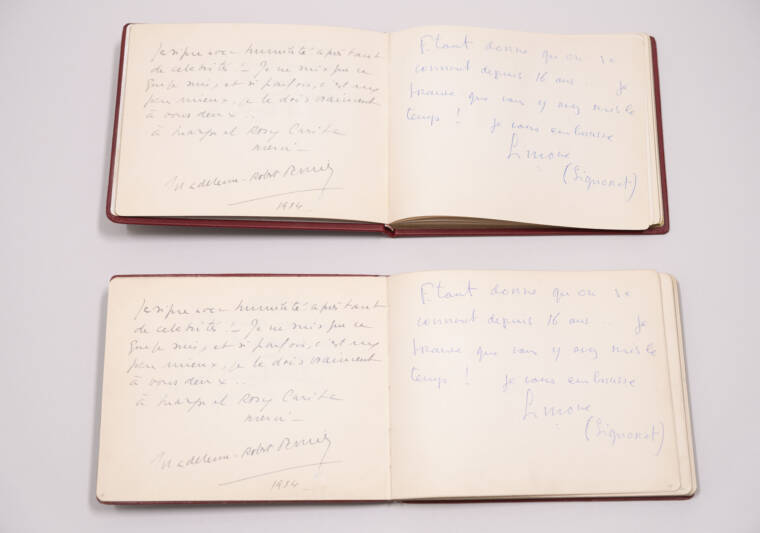 Je signe avec humilité après tant
de célébrités ! – Je ne suis que ce
que je suis, et si parfois, c'est un
peu mieux, je le dois vraiment
à vous deux ..
à et Rosy Carita
merci –
Madeleine-Robert
1954
Etant donné qu'on se
connait depuis 16 ans ... Je
trouve que vous y avez mis le
temps ! Je vous embrasse
Simone
(Signoret)
Je signe avec humilité après tant
de célébrités ! – Je ne suis que ce
que je suis, et si parfois, c'est un
peu mieux, je le dois vraiment
à vous deux ..
à et Rosy Carita
merci –
Madeleine-Robert
1954
Etant donné qu'on se
connait depuis 16 ans ... Je
trouve que vous y avez mis le
temps ! Je vous embrasse
Simone
(Signoret)